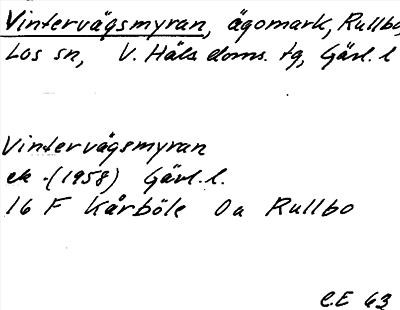 Vintervägsmyran, ägomark, Rullbo,
Los sn, V. Häls doms. tg, Gävl. l
Vintervägsmyran
ek (1958) Gävl. l.
16 F Kårböle 0a Rullbo
C.E 63